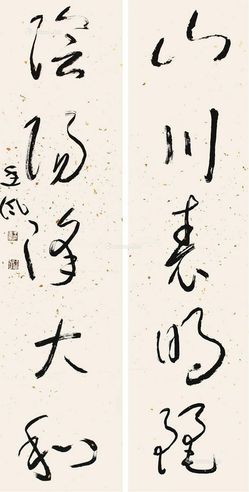 山川表明麗
陰陽降大和